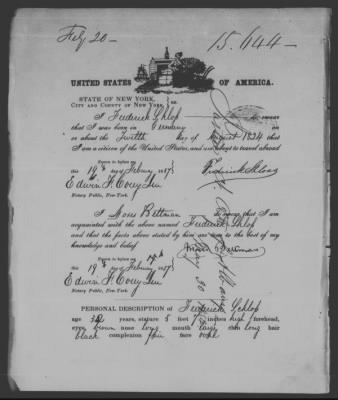 Feb 20 -
15.644 -
UNITED STATES OF AMERICA.
STATE OF NEW YORK,
CITY AND COUNTY OF NEW YORK, } ss.
I Frederick Schlop do swear
that I was born in Germany on
or about the Twelfth day of August 1834 that
I am a citizen of the United States, and about to travel abroad
Sworn to before me
this 19th day February 187
Edwin F. Corey Jun
Notary Public, New-York.
I Moses Bettman do swear that I am
acquainted with the above named Frederick Schlop
and that the facts above stated by him are true to the best of my
knowledge and belief.
Sworn to before me
this 19th day February 187
Edwin F. Corey Jun
Notary Public, New-York.
PERSONAL DESCRIPTION OF Frederick Schlop
age years, stature 5 feet 7 inches high forehead,
eyes brown nose long mouth large chin long hair
black complexion fair face oval